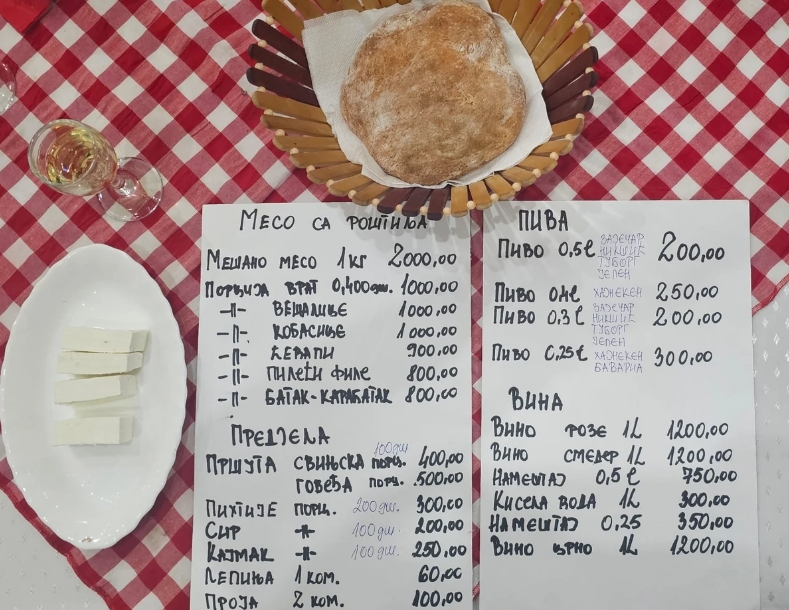 Месо са роштиља
Мешано месо 1кг 2000,00
Порција врат 0,400дш. 1000,00
-||- вешалице 1000,00
-||- кобасице 1000,00
-||- ћевапи 900,00
-||- пилећи филе 800,00
-||- батак-карабатак 800,00
Предјела
100дш
Пршута свињска порц. 400,00
говеђа порц. 500,00
Пихтије порц. 200дш. 300,00
Сир -||- 100дш. 200,00
Кајмак -||- 100дш. 250,00
Лепиња 1 ком. 60,00
Проја 2 ком. 100,00
Пива
Пиво 0,5l зајечар 200,00
никшић
туборг
јелен
Пиво 0,4l хајнекен 250,00
Пиво 0,3l зајечар 200,00
никшић
туборг
јелен
Пиво 0,25l хајнекен 300,00
бавариа
Вина
Вино розе 1L 1200,00
Вино смедер 1L 1200,00
Намештај 0,5l 750,00
Кисела вода 1L 300,00
Намештај 0,25 350,00
Вино црно 1L 1200,00